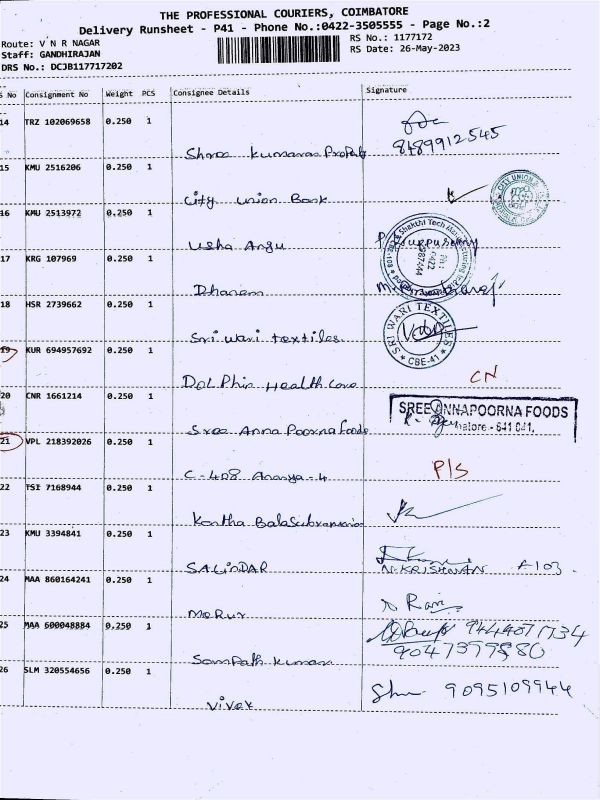 THE PROFESSIONAL COURIERS, COIMBATORE
Delivery Runsheet - P41 - Phone No.:0422-3505555 - Page No.:2
Route: V N R NAGAR
Staff: GANDHIRAJAN
DRS No.: DCJB117717202
RS No.: 1177172
RS Date: 26-May-2023
S No Consignment No Weight PCS Consignee Details Signature
14 TRZ 102069658 0.250 1
Shree Kumaran Property 8489912545
15 KMU 2516206 0.250 1
City Union Bank CITY UNION
16 KMU 2513972 0.250 1
Usha Angu
17 KRG 107969 0.250 1
Dhanam
18 HSR 2739662 0.250 1
Sri wari textiles SRI WARI TEXTILES CBE-41
19 KUR 694957692 0.250 1
Dolphin Health Care CN
20 CNR 1661214 0.250 1
Sree Anna Poorna foods SREE ANNAPOORNA FOODS
- 641 041.
21 VPL 218392026 0.250 1
C-408 Ananya-4 P/S
22 TSI 7168944 0.250 1
Kantha Balasubramania
23 KMU 3394841 0.250 1
SALINDAR N.KRISHNAN A103.
24 MAA 860164241 0.250 1
Merur Ram
25 MAA 600048884 0.250 1
9047399980
Sampath kumar
26 SLM 320554656 0.250 1
9095109944
Vivek